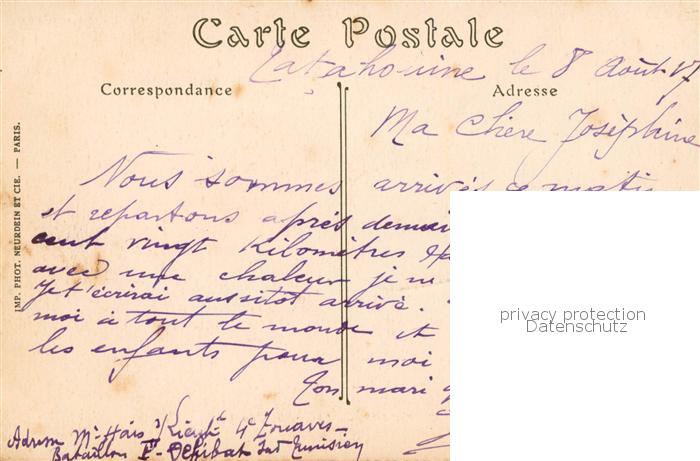 Carte Postale
Tatahouine le 8 Août 17
Correspondance
Adresse
Ma chère Joséphine
Nous sommes arrivés ce matin
et repartons après demain
cent vingt kilomètres
avec une chaleur je ne
Je t'écrirai aussitôt arrivé.
moi à tout le monde et
les enfants pour moi
Ton mari
Adresse Mr 4e Zouaves
Bataillon Dehibat Sud Tunisien
IMP. PHOT. NEURDEIN ET CIE. — PARIS.
privacy protection
Datenschutz